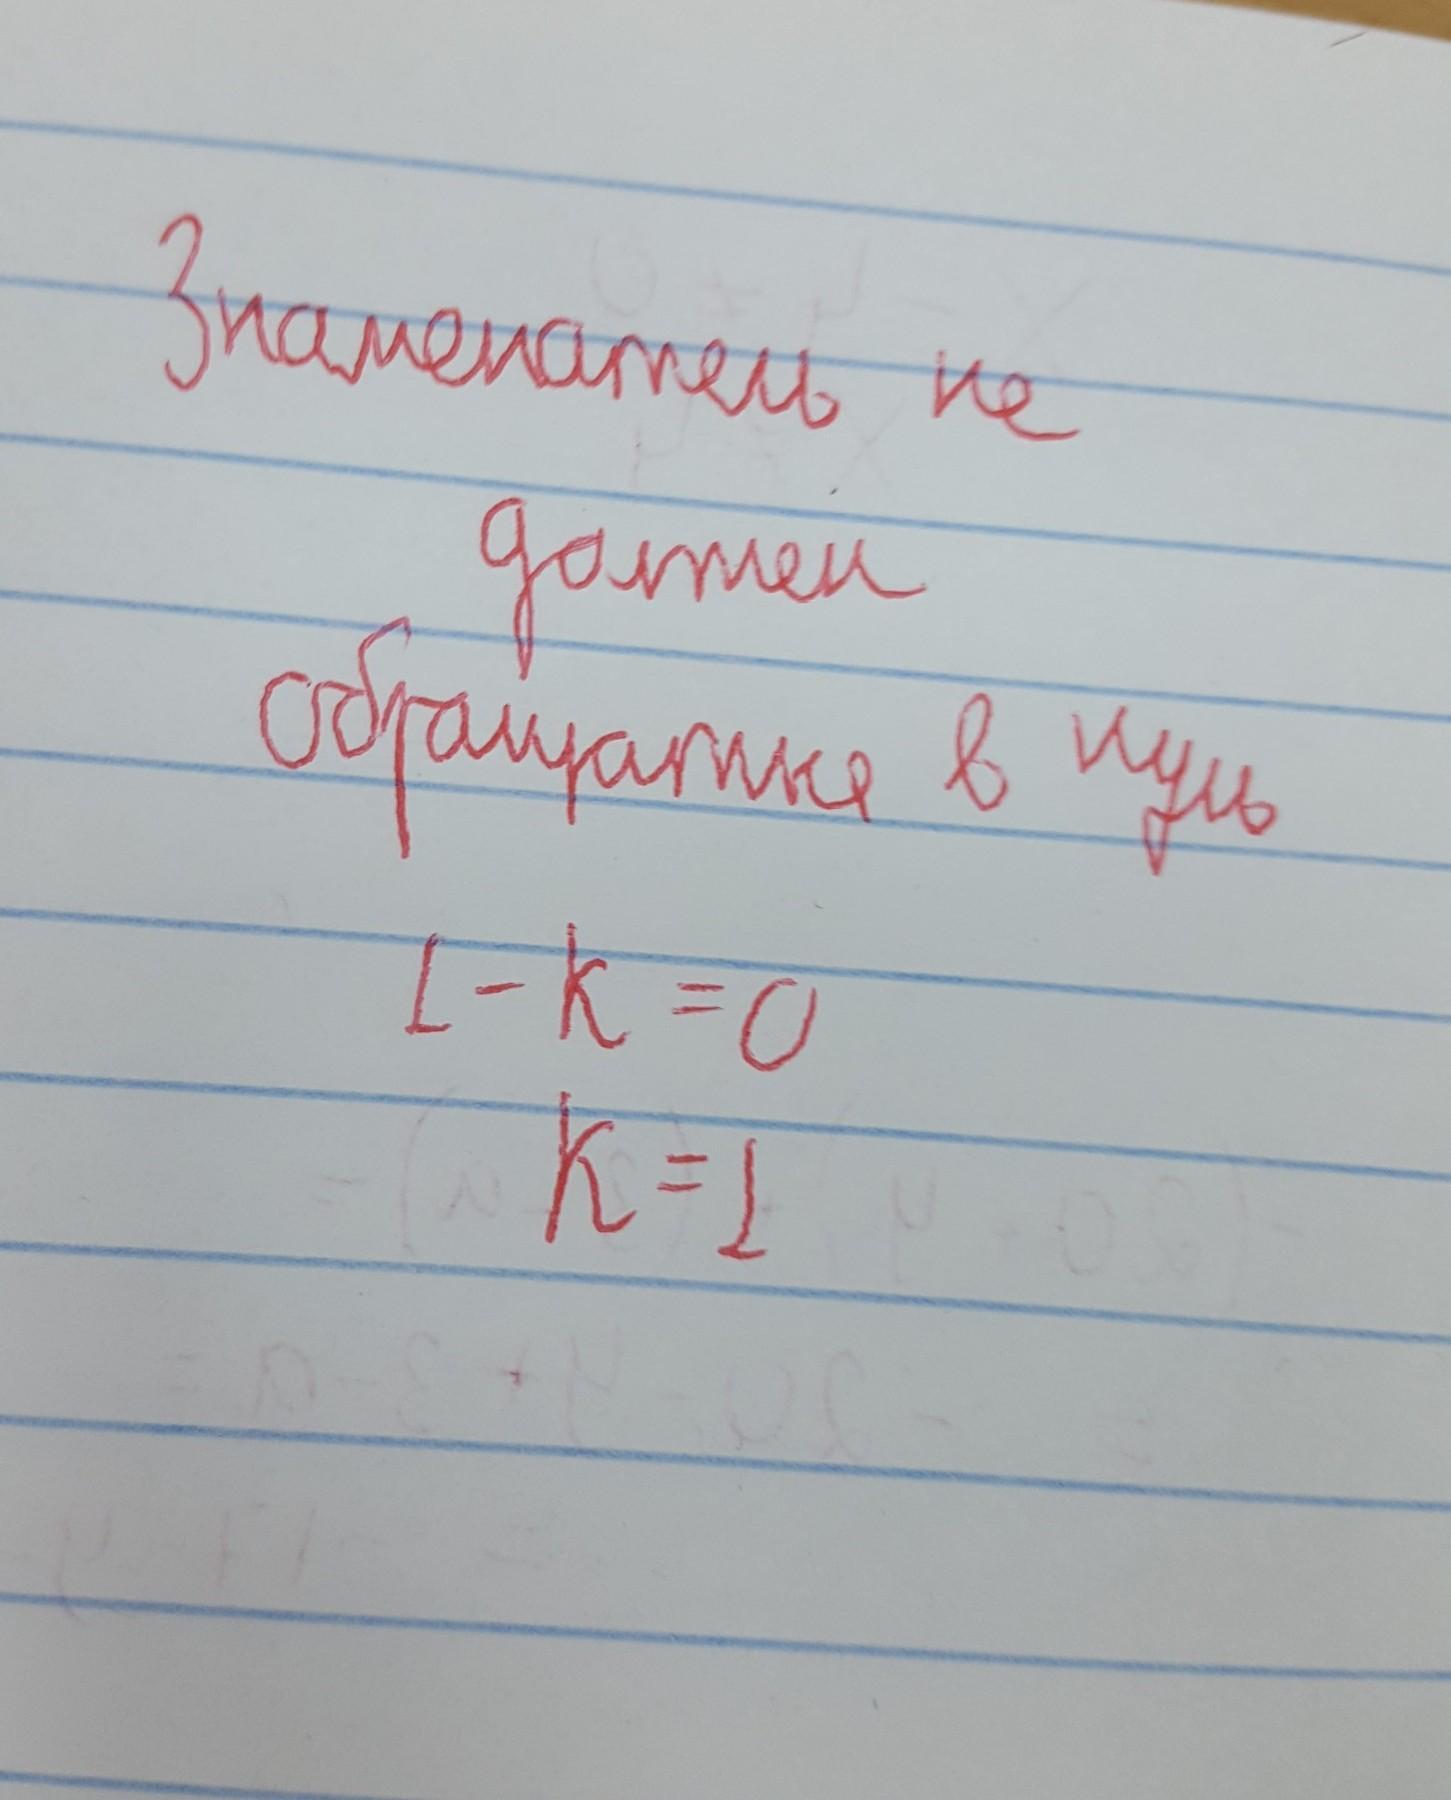 Знаменатель не
должен
обращаться в нуль
1 - k = 0
k = 1